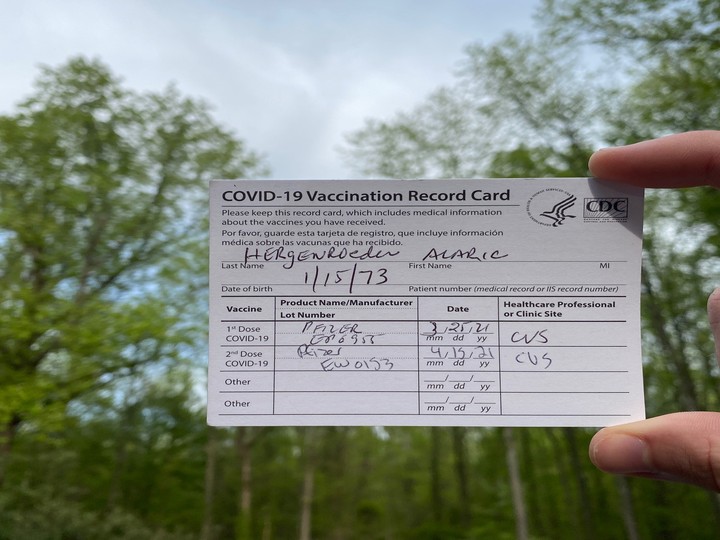 COVID-19 Vaccination Record Card
CDC
Please keep this record card, which includes medical information
about the vaccines you have received.
Por favor, guarde esta tarjeta de registro, que incluye información
médica sobre las vacunas que ha recibido.
HERgenRoeder ALARIC
Last Name First Name MI
1/15/73
Date of birth Patient number (medical record or IIS record number)
Vaccine Product Name/Manufacturer Date Healthcare Professional
Lot Number or Clinic Site
1st Dose PFIZER 3/25/21 CVS
COVID-19 mm dd yy
2nd Dose Pfizer 4/15/21 CVS
COVID-19 EW0153 mm dd yy
Other ___/___/___
mm dd yy
Other ___/___/___
mm dd yy